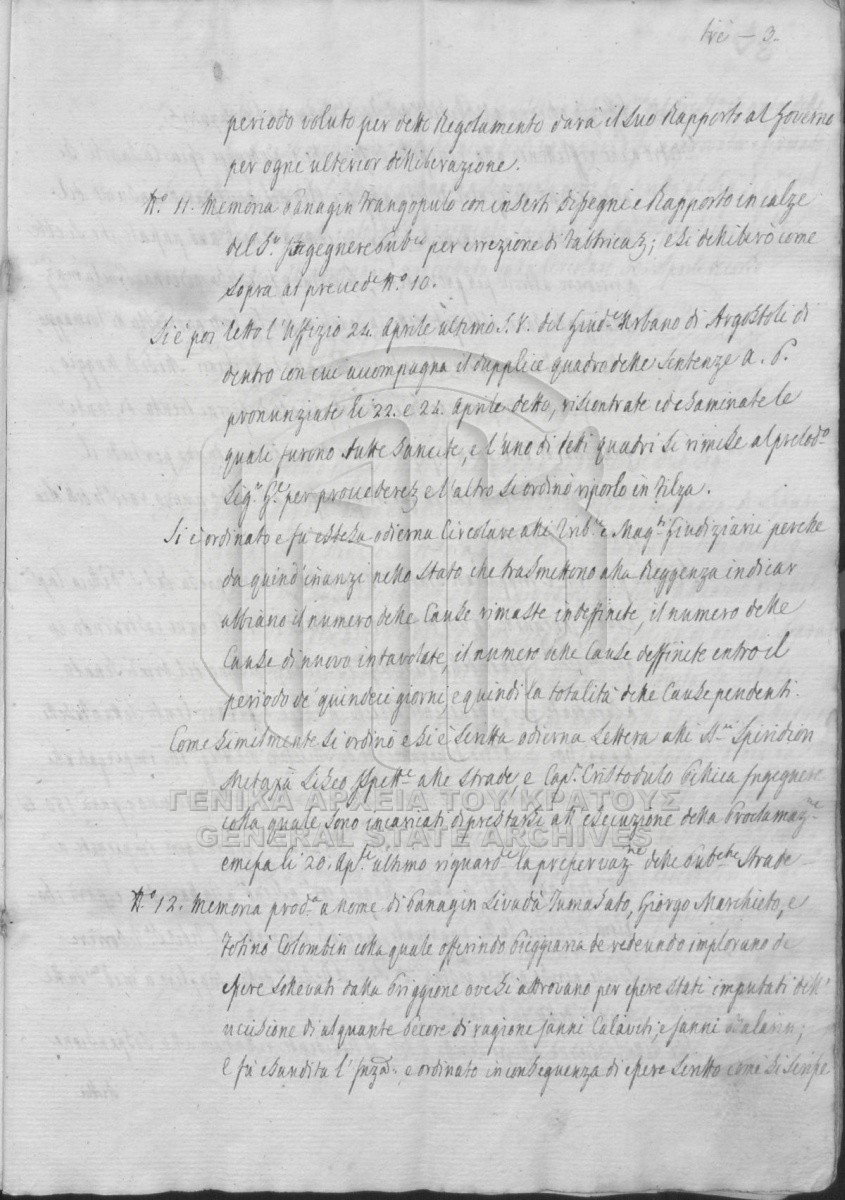 tre - 3.
periodo voluto per detto Regolamento darà il Suo Rapporto al Governo
per ogni ulterior deliberazione.
N.º 11. Memoria Panagin Trangopulo con inserti Dissegni e Rapporto in calze
del S.r Ingegnere Pub.co per errezione di Fabbrica; e si deliberò come
sopra al preced.e N.º 10.
Si è poi letto l'Uffizio 24. Aprile ultimo S.V. del Giud.e Urbano di Argostoli di
dentro con cui accompagna il dupplice quadro delle Sentenze a. P.
pronunziate li 22. e 24. Aprile detto, riscontrate ed esaminate le
quali furono tutte sancite, e l'uno di detti quadri si rimise al prelod.o
Sig.r G.e per provedere e l'altro si ordinò riporlo in Filza.
Si è ordinato e fù estesa odierna Circolare alli Trib.li e Mag.ti Giudiziarj perche
da quind'inanzi nello stato che trasmettono alla Reggenza indicar
abbiano il numero delle Cause rimaste indeffinite, il numero delle
Cause di nuovo intavolate, il numero delle Cause deffinite entro il
periodo de' quindeci giorni, e quindi la totalità delle Cause pendenti.
Come similmente si ordinò e si è scritta odierna Lettera alli SS.ri Spiridion
Metaxà Liseo Ispett.e alle Strade, e Cap.n Cristodulo Pilica Ingegnere
colla quale sono incaricati di prestarsi all'esecuzione della Proclamaz.e
emessa li 20. Ap.le ultimo riguard.e la preservaz.ne delle Pub.che Strade
N.º 12. Memoria prod.a a nome di Panagin Livadà Tumasato, Giorgo Marchieto, e
Fotinò Colombin colla quale offerindo Pieggiaria de redeundo implorano di
essere sollevati dalla Priggione ove si attrovano per essere stati imputati dell'
uccisione di alquante Pecore di ragione Janni Calaviti; e Janni
E fù esaudita l' Inza. e ordinato in conseguenza di essere scritto come si scrisse
ΓΕΝΙΚΑ ΑΡΧΕΙΑ ΤΟΥ ΚΡΑΤΟΥΣ
GENERAL STATE ARCHIVES